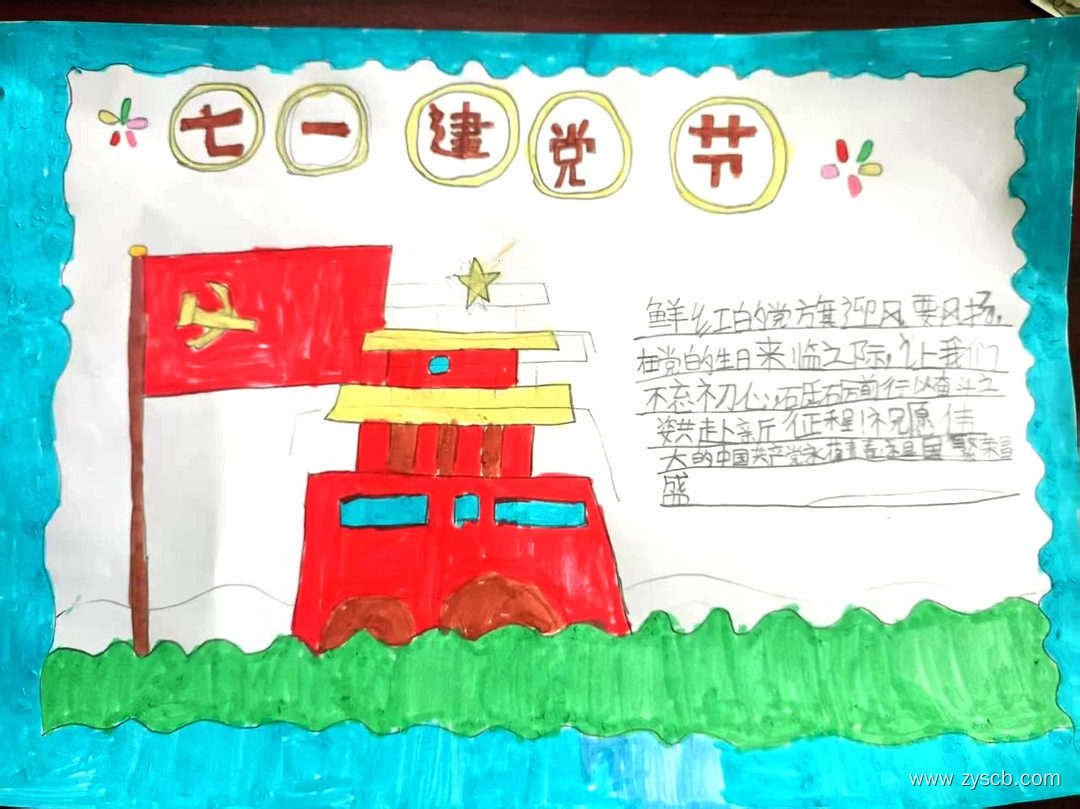 七一建党节
鲜红的党旗迎风要风扬,
在党的生日来临之际,让我们
不忘初心,砥砺前行以奋斗之
姿共赴新征程!祝愿伟
大的中国共产党永葆青春祖国繁荣昌
盛
www.zyscb.com